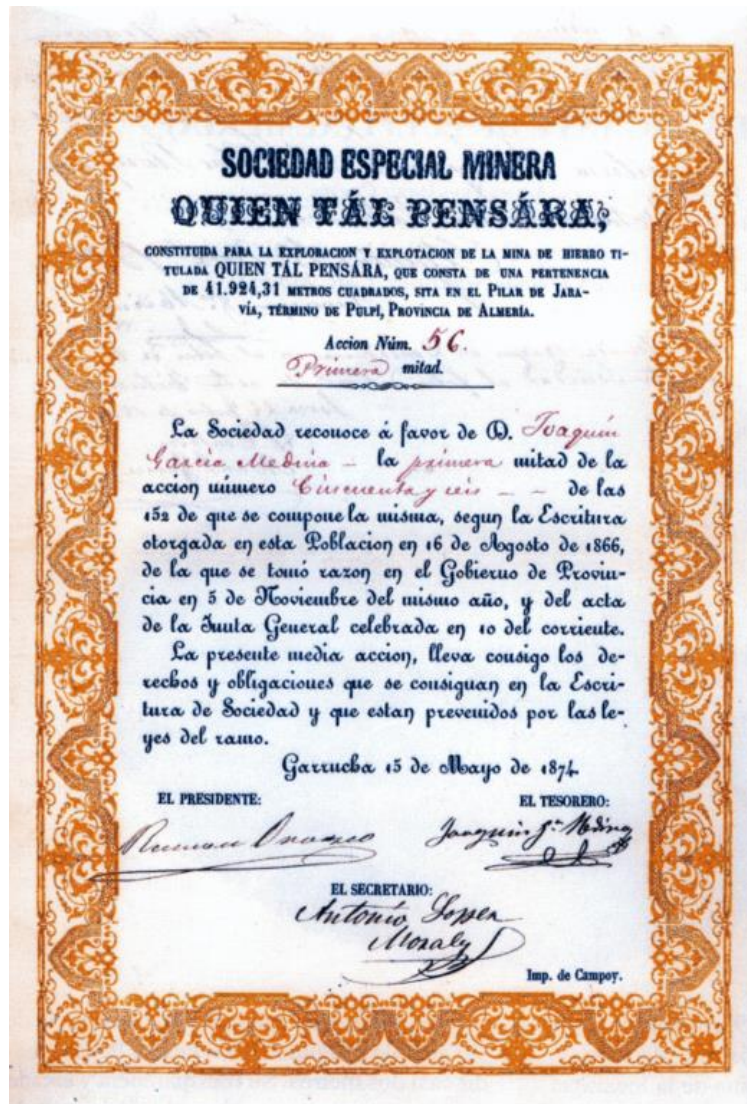 SOCIEDAD ESPECIAL MINERA
QUIEN TÁL PENSÁRA,
CONSTITUIDA PARA LA EXPLORACION Y EXPLOTACION DE LA MINA DE HIERRO TI-
TULADA QUIEN TÁL PENSÁRA, QUE CONSTA DE UNA PERTENENCIA
DE 41.924,31 METROS CUADRADOS, SITA EN EL PILAR DE JARA-
VÍA, TÉRMINO DE PULPÍ, PROVINCIA DE ALMERÍA.
Accion Núm. 56.
Primera mitad.
La Sociedad reconoce á favor de D. Joaquín
García Medina - la primera mitad de la
accion número Cincuenta y seis - - de las
152 de que se compone la misma, segun la Escritura
otorgada en esta Poblacion en 16 de Agosto de 1866,
de la que se tomó razon en el Gobierno de Provin-
cia en 5 de Noviembre del mismo año, y del acta
de la Junta General celebrada en 10 del corriente.
La presente media accion, lleva consigo los de-
rechos y obligaciones que se consignan en la Escri-
tura de Sociedad y que estan prevenidos por las le-
yes del ramo.
Garrucha 15 de Mayo de 1874.
EL PRESIDENTE:
EL TESORERO:
Ramon Orozco
Joaquin Gª Medina
EL SECRETARIO:
Antonio Lopez
Morales
Imp. de Campoy.